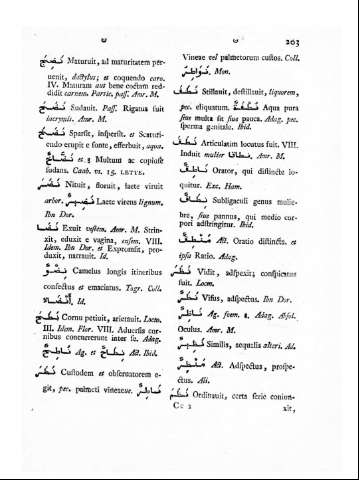 ن ن 203
نَضِجَ Maturuit, ad maturitatem per-
uenit, dactylus; et coquendo caro.
IV. Maturam aut bene coctam red-
didit carnem. Partic. pass. Amr. M.
نَضَحَ Sudauit. Pass. Rigatus fuit
lacrymis. Amr. M.
نَضَخَ Sparsit, inspersit. et Scaturi-
endo erupit e fonte, efferbuit, aqua.
نَضَّاخٌ et. § Multum ac copiose
sudans. Caab. vs. 15. LETTE.
نَضَرَ Nituit, floruit, laete viruit
arbor. نَضِيرٌ Laete virens lignum,
Ibn Dor.
نَضَا Exuit vestem. Amr. M. Strin-
xit, eduxit e vagina, ensem. VIII.
Idem. Ibn Dor. et Expromsit, pro-
duxit, narrauit. Id.
نِضْوٌ Camelus longis itineribus
confectus et emaciatus. Togr. Coll.
أَنْضَاءٌ. Id.
نَطَحَ Cornu petiuit, arietauit. Locm.
III. Idem. Flor. VIII. Aduersis cor-
nibus concurrerunt inter se. Adag.
نَاطِحٌ Ag. et نَطَّاحٌ Act. Ibid.
نَطَرَ Custodem et obseruatorem e-
git, pec. palmeti vineaeue. نَاطِرٌ
Vineae vel palmetorum custos. Coll.
نَوَاطِرُ. Mon.
نَطَفَ Stillauit, destillauit, liquorem,
pec. eliquatum. نُطْفَةٌ Aqua pura
siue multa sit siue pauca. Adag. pec.
sperma genitale. Ibid.
نَطَقَ Articulatim locutus fuit. VIII.
Induit mulier نِطَاقًا. Amr. M.
نَاطِقٌ Orator, qui distincte lo-
quitur. Exc. Ham.
نِطَاقٌ Subligaculi genus mulie-
bre, siue pannus, qui medio cor-
pori adstringitur. Ibid.
مَنْطِقٌ Act. Oratio distincta. et
ipsa Ratio. Adag.
نَظَرَ Vidit, adspexit; conspicatus
fuit. Locm.
نَظَرٌ Visus, adspectus. Ibn Dor.
نَاظِرٌ Ag. foem. ة. Adag. Absol.
Oculus. Amr. M.
نَظِيرٌ Similis, aequalis alteri. Ad.
مَنْظَرٌ Act. Adspectus, prospe-
ctus. Ali.
نَظَمَ Ordinauit, certa serie coniun-
Cc 2 xit,